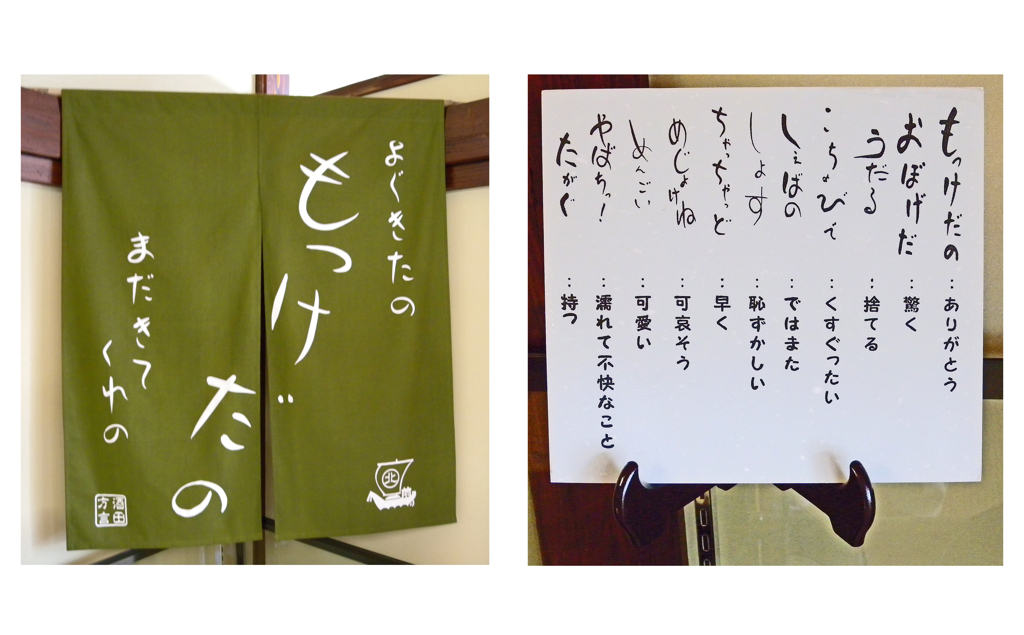 よぐきたの
もっけだの
まだきて
くれの
北
酒田
方言
もっけだの：ありがとう
おぼげだ：驚く
うだる：捨てる
こちょびで：くすぐったい
しぇばの：ではまた
しょす：恥ずかしい
ちゃっちゃっど：早く
めじょけね：可哀そう
めんごい：可愛い
やばちっ！：濡れて不快なこと
たがぐ：持つ